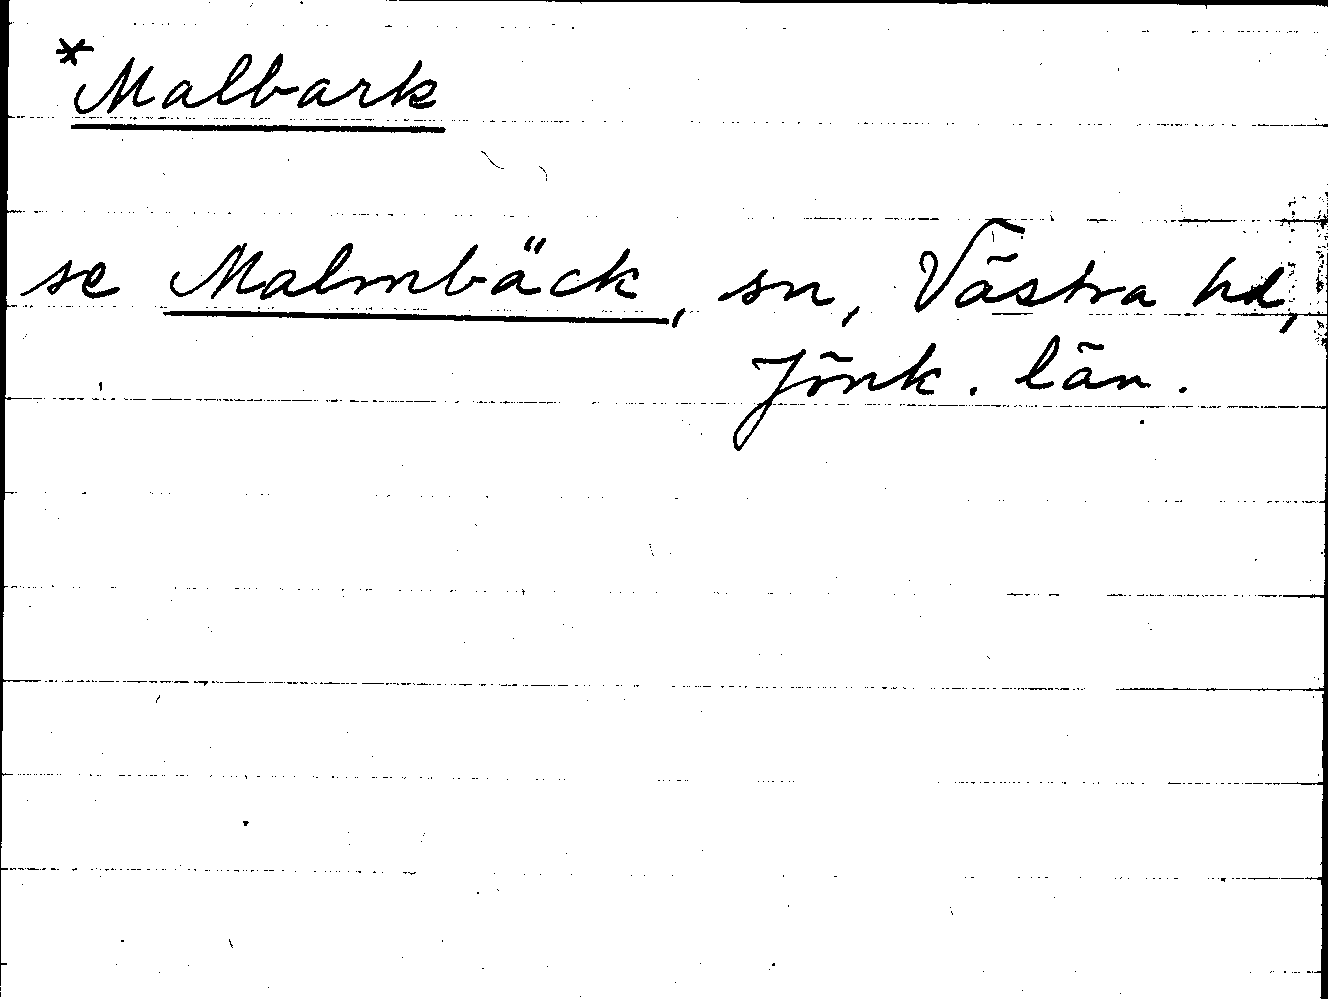 *Malbark
se Malmbäck, sn, Västra hd,
Jönk. län.